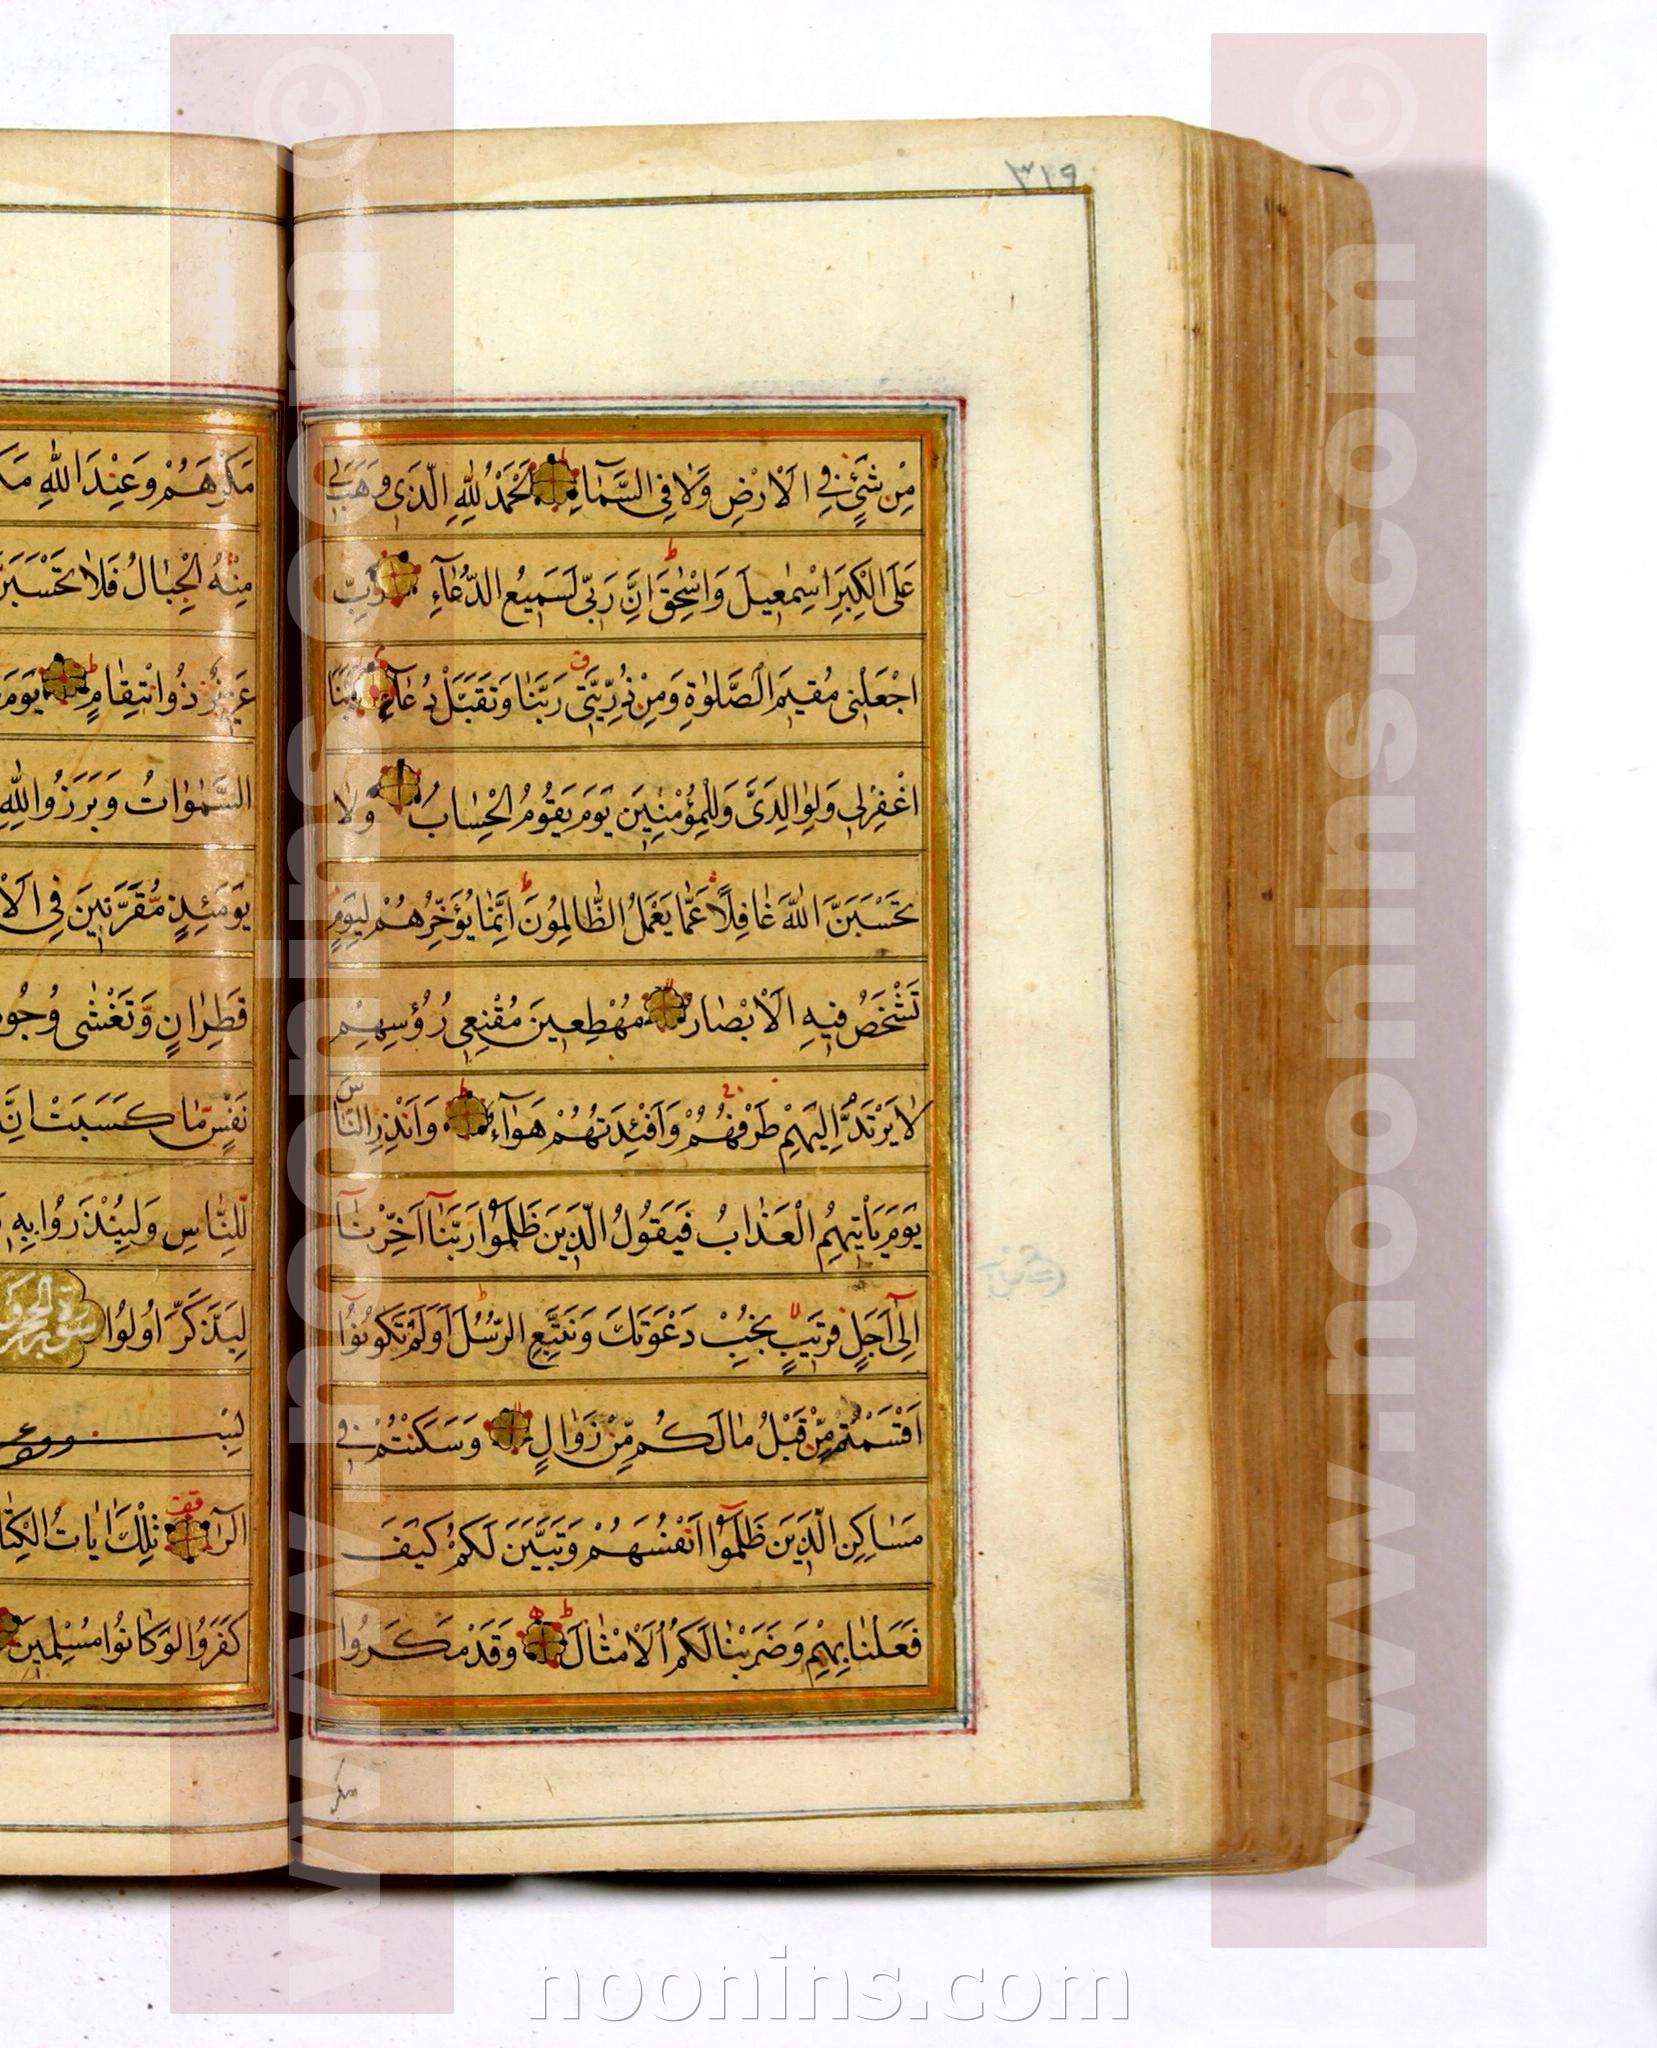 ٣١٩
مِنْ شَيْءٍ فِي الْاَرْضِ وَلَا فِي السَّمَاءِ اَلْحَمْدُ لِلّٰهِ الَّذِي وَهَبَ لِي
عَلَى الْكِبَرِ اِسْمٰعِيلَ وَاِسْحٰقَ اِنَّ رَبِّي لَسَمِيعُ الدُّعَآءِ رَبِّ
اجْعَلْنِي مُقِيمَ الصَّلٰوةِ وَمِنْ ذُرِّيَّتِي رَبَّنَا وَتَقَبَّلْ دُعَآءِ رَبَّنَا
اغْفِرْلِي وَلِوَالِدَيَّ وَلِلْمُؤْمِنِينَ يَوْمَ يَقُومُ الْحِسَابُ وَلَا
تَحْسَبَنَّ اللّٰهَ غَافِلًا عَمَّا يَعْمَلُ الظَّالِمُونَ اِنَّمَا يُؤَخِّرُهُمْ لِيَوْمٍ
تَشْخَصُ فِيهِ الْاَبْصَارُ مُهْطِعِينَ مُقْنِعِي رُؤُسِهِمْ
لَا يَرْتَدُّ اِلَيْهِمْ طَرْفُهُمْ وَاَفْئِدَتُهُمْ هَوَآءٌ وَاَنْذِرِ النَّاسَ
يَوْمَ يَاْتِيهِمُ الْعَذَابُ فَيَقُولُ الَّذِينَ ظَلَمُوا رَبَّنَآ اَخِّرْنَآ
اِلٰٓى اَجَلٍ قَرِيبٍ نُجِبْ دَعْوَتَكَ وَنَتَّبِعِ الرُّسُلَ اَوَلَمْ تَكُونُوٓا
اَقْسَمْتُمْ مِنْ قَبْلُ مَا لَكُمْ مِنْ زَوَالٍ وَسَكَنْتُمْ فِي
مَسَاكِنِ الَّذِينَ ظَلَمُوٓا اَنْفُسَهُمْ وَتَبَيَّنَ لَكُمْ كَيْفَ
فَعَلْنَا بِهِمْ وَضَرَبْنَا لَكُمُ الْاَمْثَالَ وَقَدْ مَكَرُوا
مكر
مَكْرَهُمْ وَعِنْدَ اللّٰهِ
مِنْهُ الْجِبَالُ فَلَا تَحْسَبَنَّ
عَزِيزٌ ذُو انْتِقَامٍ يَوْمَ
السَّمٰوَاتُ وَبَرَزُوا لِلّٰهِ
يَوْمَئِذٍ مُقَرَّنِينَ فِي
قَطِرَانٍ وَتَغْشٰى
نَفْسٍ مَا كَسَبَتْ اِنَّ
لِلنَّاسِ وَلِيُنْذَرُوا بِهِ
لِيَذَّكَّرَ اُولُوا
الٓرٰ تِلْكَ اٰيَاتُ
كَفَرُوا لَوْ كَانُوا مُسْلِمِينَ
© www.noonins.com
© www.noonins.com
noonins.com